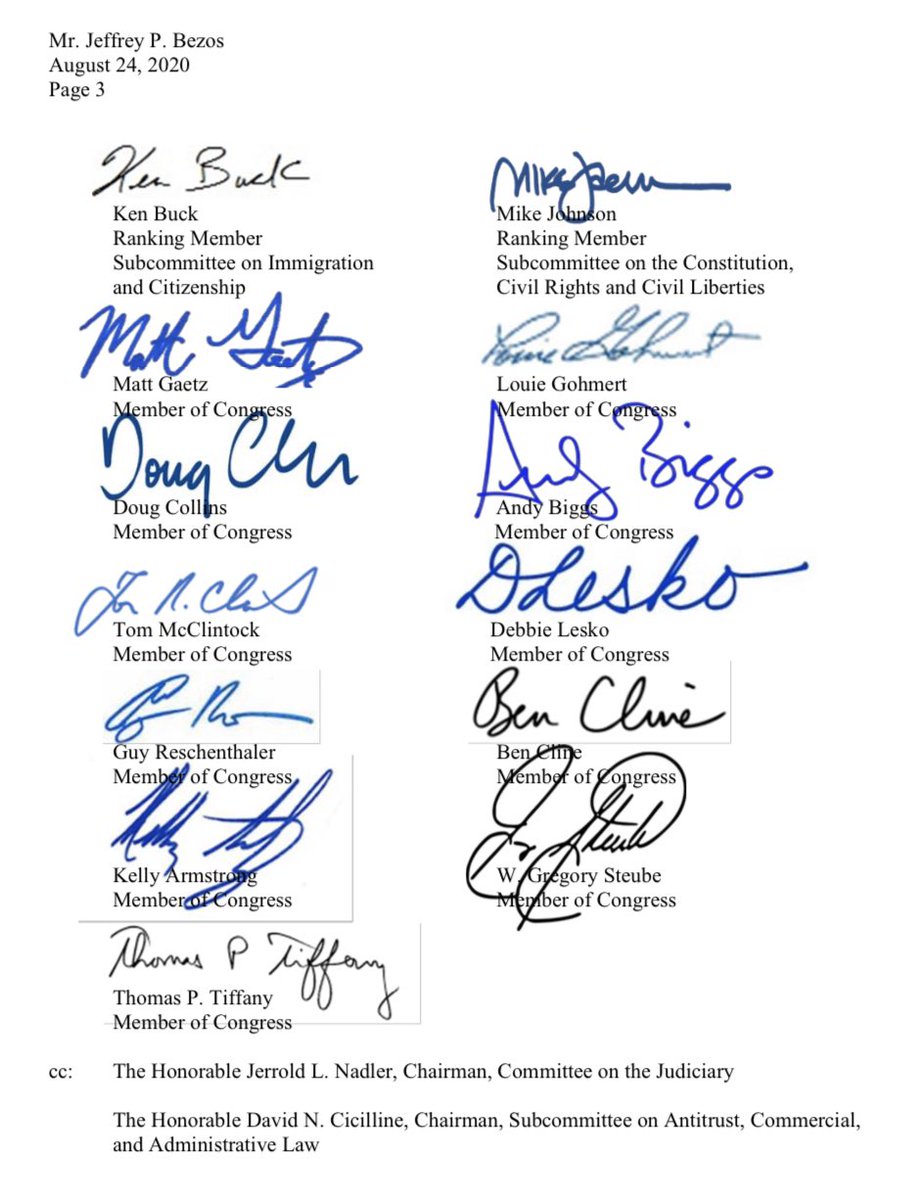 Mr. Jeffrey P. Bezos
August 24, 2020
Page 3
Ken Buck
Ken Buck
Ranking Member
Subcommittee on Immigration
and Citizenship
Mike Johnson
Ranking Member
Subcommittee on the Constitution,
Civil Rights and Civil Liberties
Matt Gaetz
Matt Gaetz
Member of Congress
Louie Gohmert
Louie Gohmert
Member of Congress
Doug
Doug Collins
Member of Congress
Andy Biggs
Andy Biggs
Member of Congress
Tom McClintock
Member of Congress
DLesko
Debbie Lesko
Member of Congress
Guy Reschenthaler
Member of Congress
Ben Cline
Ben Cline
Member of Congress
Kelly Armstrong
Member of Congress
Steube
W. Gregory Steube
Member of Congress
Thomas P Tiffany
Thomas P. Tiffany
Member of Congress
cc: The Honorable Jerrold L. Nadler, Chairman, Committee on the Judiciary
The Honorable David N. Cicilline, Chairman, Subcommittee on Antitrust, Commercial,
and Administrative Law